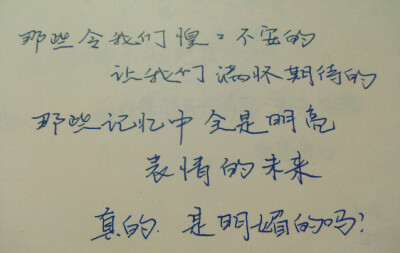 那些令我们惶々不安的
让我们满怀期待的
那些记忆中全是明亮
表情的未来
真的.是明媚的吗?